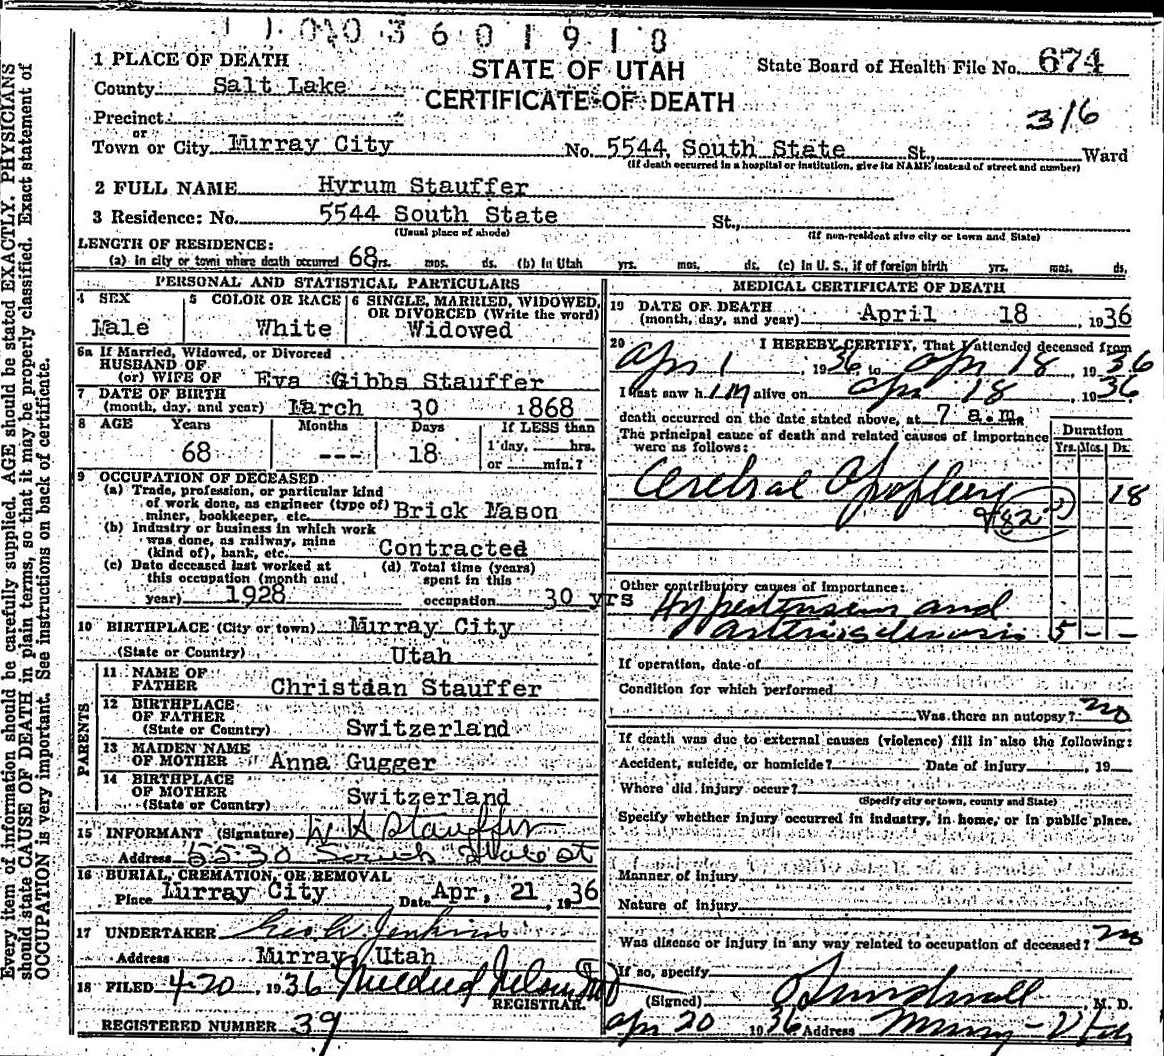 11003601918
STATE OF UTAH
CERTIFICATE OF DEATH
State Board of Health File No. 674
316
1 PLACE OF DEATH
County Salt Lake
Precinct
or
Town or City Murray City No. 5544 South State St., Ward
(If death occurred in a hospital or institution, give its NAME instead of street and number)
2 FULL NAME Hyrum Stauffer
3 Residence: No. 5544 South State St.,
(Usual place of abode) (If non-resident give city or town and State)
LENGTH OF RESIDENCE:
(a) In city or town where death occurred 68 yrs. mos. ds. (b) In Utah yrs. mos. ds. (c) In U. S., if of foreign birth yrs. mos. ds.
PERSONAL AND STATISTICAL PARTICULARS
4 SEX
Male
5 COLOR OR RACE
White
6 SINGLE, MARRIED, WIDOWED,
OR DIVORCED (Write the word)
Widowed
6a If Married, Widowed, or Divorced
HUSBAND OF
(or) WIFE OF Eva Gibbs Stauffer
7 DATE OF BIRTH
(month, day, and year) March 30 1868
8 AGE Years Months Days If LESS than
68 --- 18 1 day, hrs.
or min.?
9 OCCUPATION OF DECEASED
(a) Trade, profession, or particular kind
of work done, as engineer (type of)
miner, bookkeeper, etc. Brick Mason
(b) Industry or business in which work
was done, as railway, mine
(kind of), bank, etc. Contracted
(c) Date deceased last worked at
this occupation (month and
year) 1928
(d) Total time (years)
spent in this
occupation 30 yrs
10 BIRTHPLACE (City or town) Murray City
(State or Country) Utah
PARENTS
11 NAME OF
FATHER Christian Stauffer
12 BIRTHPLACE
OF FATHER
(State or Country) Switzerland
13 MAIDEN NAME
OF MOTHER Anna Gugger
14 BIRTHPLACE
OF MOTHER
(State or Country) Switzerland
15 INFORMANT (Signature) W H Stauffer
Address 5530 South State St
16 BURIAL, CREMATION, OR REMOVAL
Place Murray City Date Apr. 21, 1936
17 UNDERTAKER Jenkins
Address Murray, Utah
18 FILED 4-20, 1936 Mildred Nelson
REGISTRAR.
REGISTERED NUMBER 39
MEDICAL CERTIFICATE OF DEATH
19 DATE OF DEATH
(month, day, and year) April 18, 1936
20 I HEREBY CERTIFY, That I attended deceased from
Apr 1, 1936, to Apr 18, 1936
I last saw h im alive on Apr 18, 1936
death occurred on the date stated above, at 7 a.m.
The principal cause of death and related causes of importance
were as follows:
Duration
Yrs. Mos. Ds.
Cerebral Apoplexy 18
82
Other contributory causes of importance:
Hypertension and
arteriosclerosis 5 - -
If operation, date of
Condition for which performed
Was there an autopsy? no
If death was due to external causes (violence) fill in also the following:
Accident, suicide, or homicide? Date of injury , 19
Where did injury occur?
(Specify city or town, county and State)
Specify whether injury occurred in industry, in home, or in public place.
Manner of injury
Nature of injury
Was disease or injury in any way related to occupation of deceased? no
If so, specify
(Signed) Sundwall, M. D.
Apr 20 1936 Address Murray - Utah
Every item of information should be carefully supplied. AGE should be stated EXACTLY. PHYSICIANS
should state CAUSE OF DEATH in plain terms, so that it may be properly classified. Exact statement of
OCCUPATION is very important. See instructions on back of certificate.